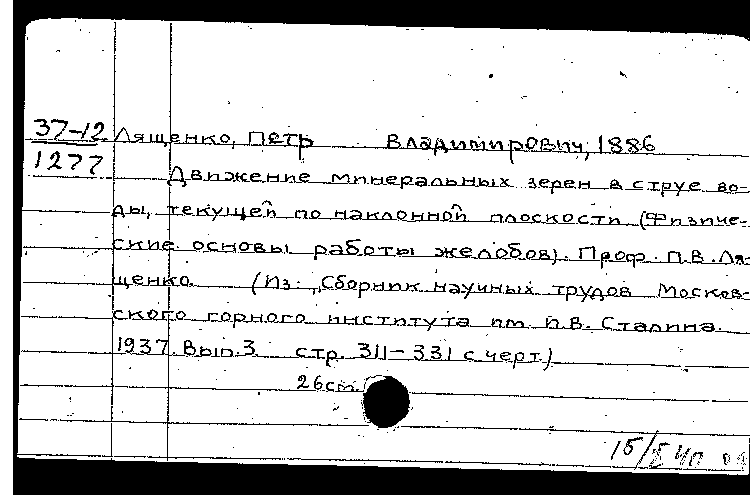 37-12 Лященко, Петр Владимирович, 1886
1277 Движение минеральных зерен в струе во-
ды, текущей по наклонной плоскости (Физиче-
ские основы работы желобов). Проф. П.В. Ля-
щенко. (Из: „Сборник научных трудов Москов-
ского горного института им. И.В. Сталина.
1937. Вып. 3 стр. 311-331 с черт.)
26см.
15/